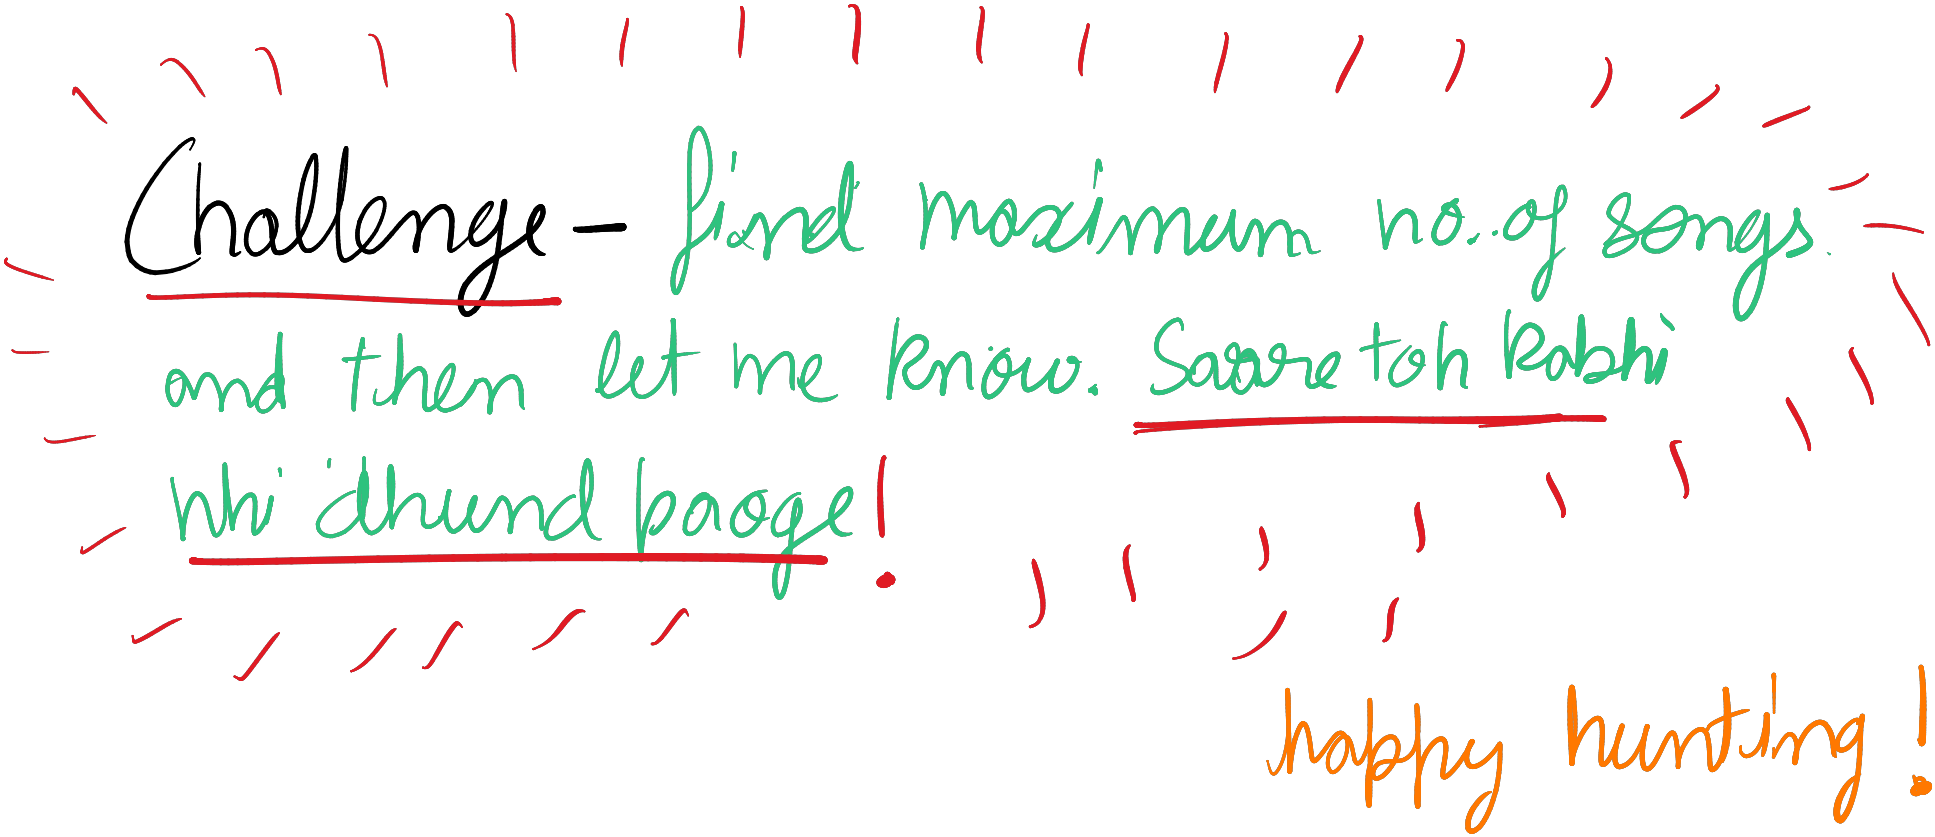 Challenge - find maximum no. of songs.
and then let me know. Saare toh kabhi
nhi dhund paoge!
happy hunting!